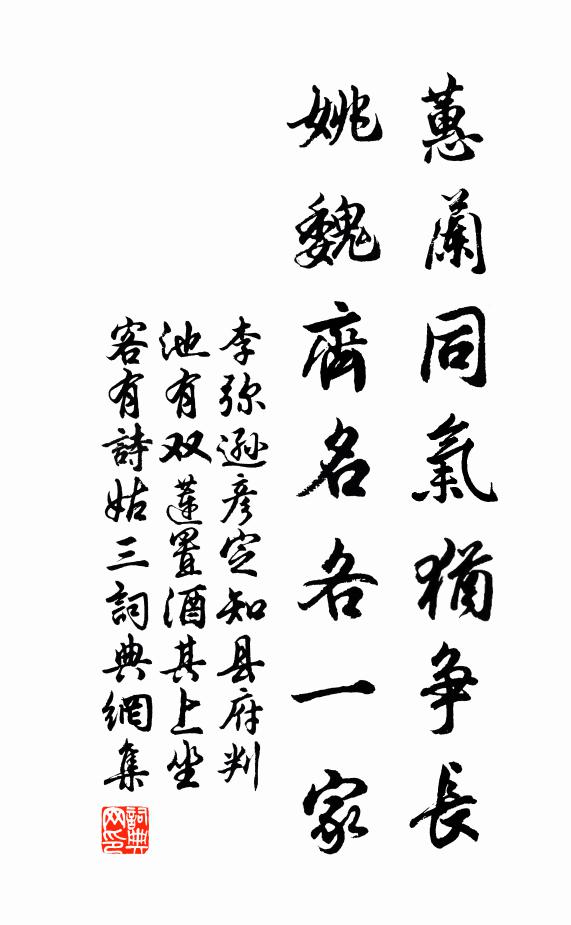 蕙蘭同氣猶争長
姚魏齊名各一家
李弥遜彦定知县府判
池有双蓮置酒其上坐
客有詩姑三詞典網集
詞典网印